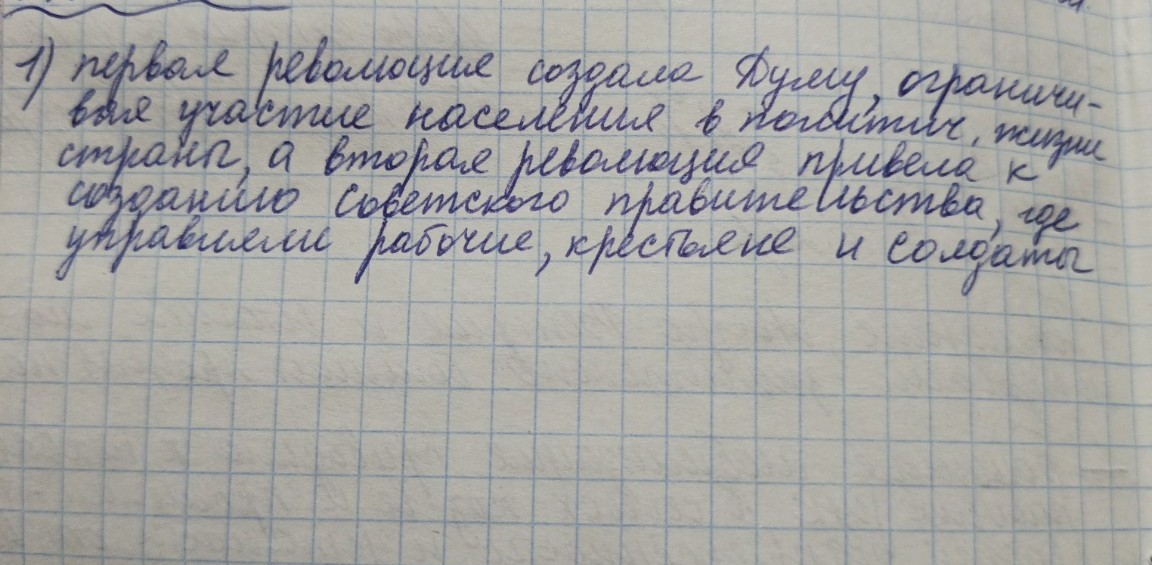 1) первая революция создала Думу, ограничи-
вая участие населения в политич. жизни
страны, а вторая революция привела к
созданию Советского правительства, где
управляли рабочие, крестьяне и солдаты